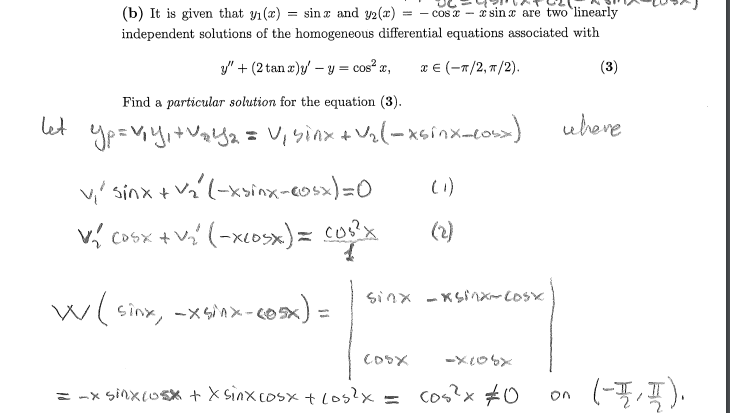 (b) It is given that y₁(x) = sin x and y₂(x) = − cos x − x sin x are two linearly
independent solutions of the homogeneous differential equations associated with
y″ + (2 tan x)y′ − y = cos² x, x ∈ (−π/2, π/2). (3)
Find a particular solution for the equation (3).
let yp = v₁y₁ + v₂y₂ = v₁ sinx + v₂(−xsinx−cosx) where
v₁′ sinx + v₂′(−xsinx−cosx)=0 (1)
v₁′ cosx + v₂′(−xcosx) = cos²x/1 (2)
W( sinx, −xsinx−cosx) = | sinx −xsinx−cosx |
| cosx −xcosx |
= −x sinxcosx + x sinxcosx + cos²x = cos²x ≠ 0 on (−π/2, π/2).